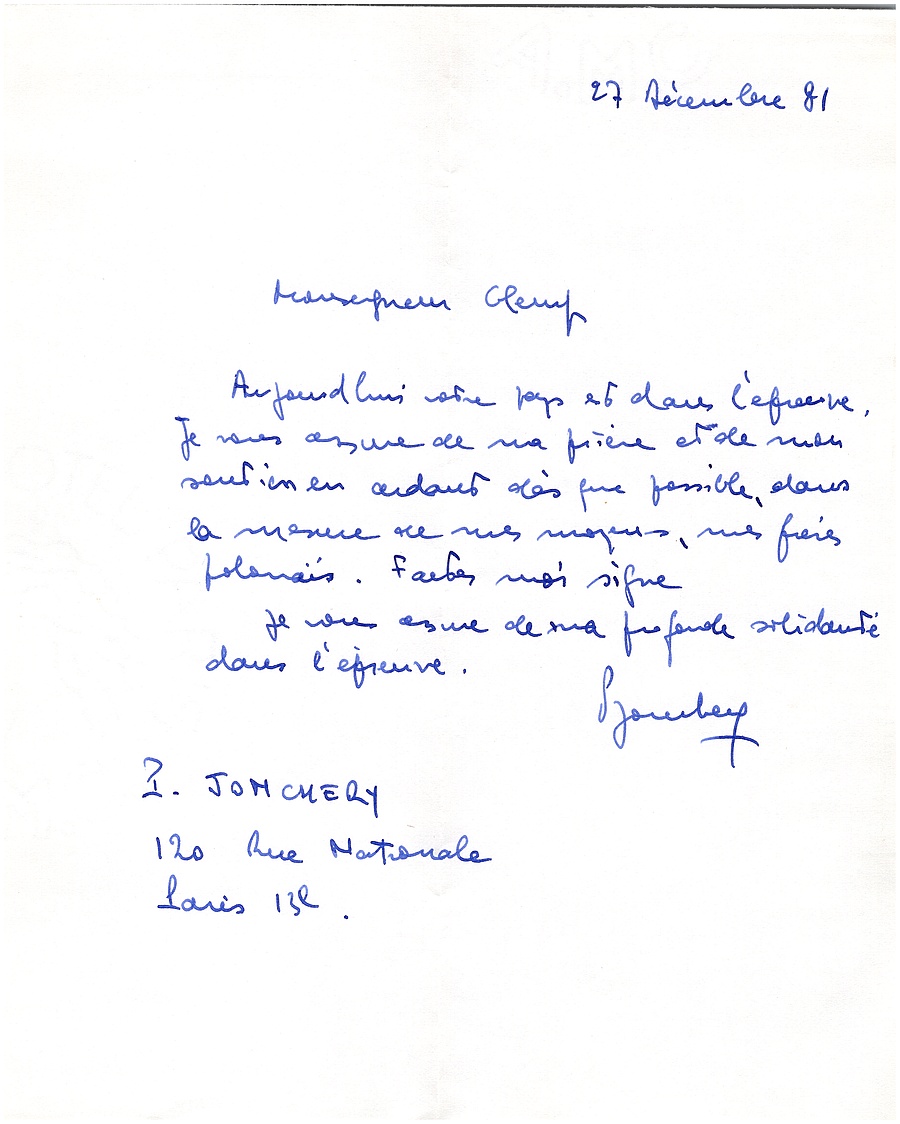 27 Décembre 81
Monseigneur Glemp
Aujourd'hui votre pays est dans l'épreuve.
Je vous assure de ma prière et de mon
soutien en aidant dès que possible, dans
la mesure de mes moyens, mes frères
polonais. Faites moi signe
Je vous assure de ma profonde solidarité
dans l'épreuve.
PJonchery
P. JONCHERY
120 Rue Nationale
Paris 13e.